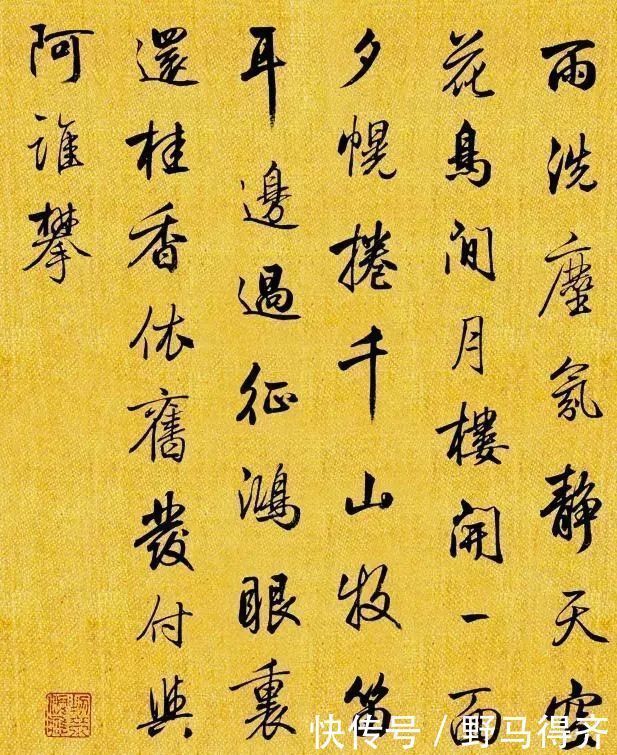 雨洗塵氛靜天空
花鳥閒月樓開一面
夕幌捲千山牧笛
耳邊過征鴻眼裏
還桂香依舊發付與
阿誰攀
快传号 / 野马得齐